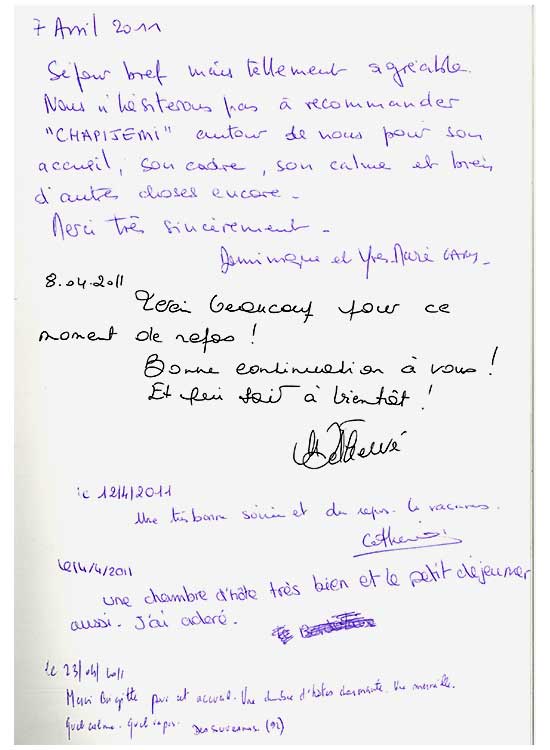 7 Avril 2011
Séjour bref mais tellement agréable.
Nous n'hésiterons pas à recommander
"CHAPITEMI" autour de nous pour son
accueil, son cadre, son calme et bien
d'autres choses encore -
Merci très sincèrement -
Dominique et Yves-Marie
8.04.2011
Merci beaucoup pour ce
moment de repos !
Bonne continuation à vous !
Et qui sait à bientôt !
Hervé
le 12/4/2011
Une très bonne soirée et du repos. le vacances.
Catherine
Le 14/4/2011
une chambre d'hôte très bien et le petit déjeuner
aussi. J'ai adoré.
le 23/04/2011
Merci Brigitte pour cet accueil. Une chambre d'hôtes charmante. Une merveille.
Quel calme. Quel repos. (92)